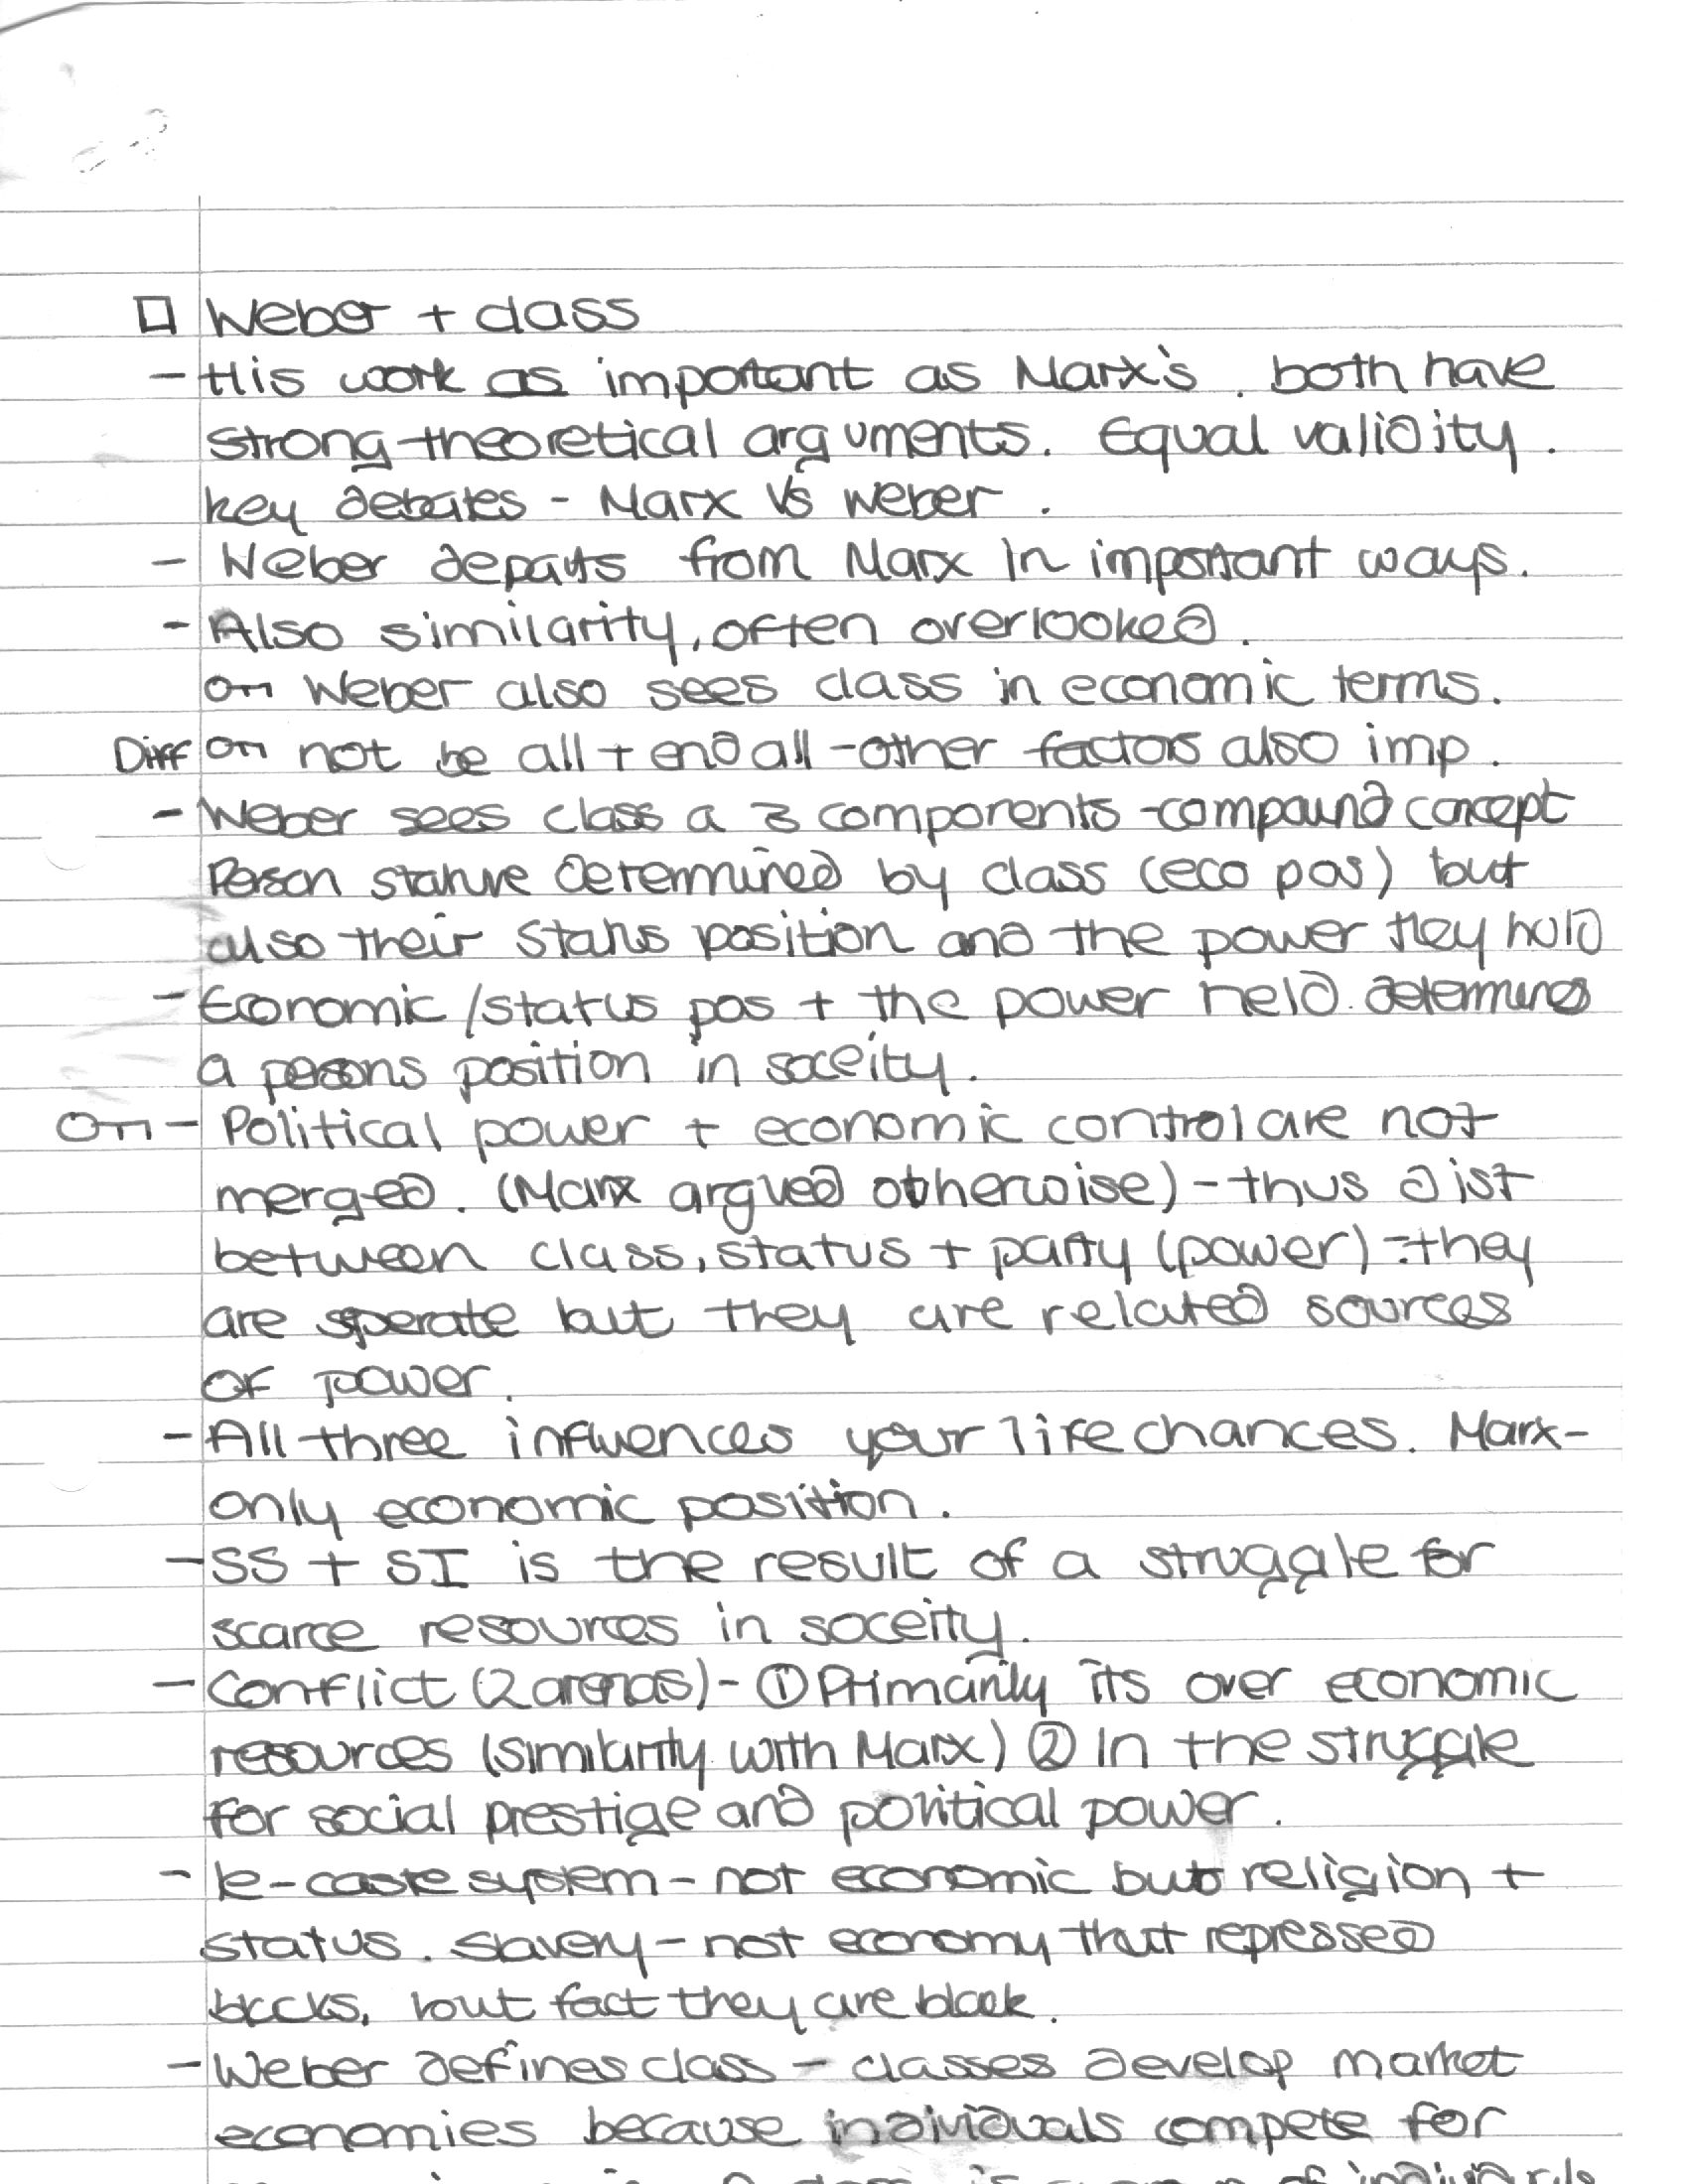 □ Weber + class
- His work as important as Marx's. both have
strong theoretical arguments. Equal validity.
key debates - Marx Vs Weber.
- Weber departs from Marx in important ways.
- Also similarity, often overlooked.
Weber also sees class in economic terms.
Diff not be all + end all - other factors also imp.
- Weber sees class a 3 components - compound concept
Person stature determined by class (eco pos) but
also their status position and the power they hold
- Economic/status pos + the power held determines
a persons position in soceity.
- Political power + economic control are not
merged. (Marx argued otherwise) - thus dist
between class, status + party (power) - they
are sperate but they are related sources
of power.
- All three influences your life chances. Marx -
only economic position.
- SS + SI is the result of a struggle for
scarce resources in soceity.
- Conflict (2 arenas) - ① Primarily its over economic
resources (similarity with Marx) ② In the struggle
for social prestige and political power.
- Ie - caste system - not economic but religion +
status. Slavery - not economy that repressed
blacks, but fact they are black.
- Weber defines class - classes develop market
economies because individuals compete for